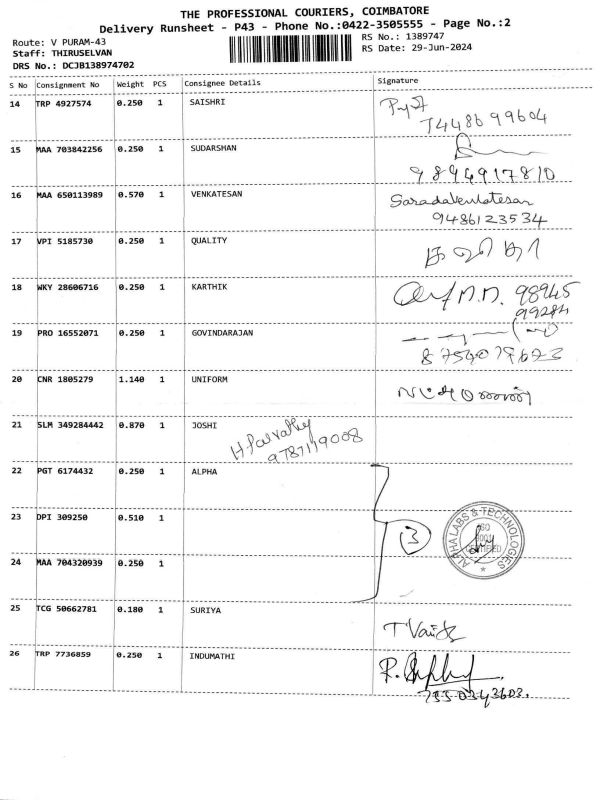 THE PROFESSIONAL COURIERS, COIMBATORE
Delivery Runsheet - P43 - Phone No.:0422-3505555 - Page No.:2
Route: V PURAM-43
RS No.: 1389747
Staff: THIRUSELVAN
RS Date: 29-Jun-2024
DRS No.: DCJB138974702
S No Consignment No Weight PCS Consignee Details Signature
14 TRP 4927574 0.250 1 SAISHRI
7448699604
15 MAA 703842256 0.250 1 SUDARSHAN
9894917810
16 MAA 650113989 0.570 1 VENKATESAN
9486123534
17 VPI 5185730 0.250 1 QUALITY
18 WKY 28606716 0.250 1 KARTHIK 98945
99284
19 PRO 16552071 0.250 1 GOVINDARAJAN
20 CNR 1805279 1.140 1 UNIFORM
21 SLM 349284442 0.870 1 JOSHI
H Parvathy
9787119008
22 PGT 6174432 0.250 1 ALPHA
23 DPI 309250 0.510 1
3
ALPHA LABS & TECHNOLOGIES
ISO
9001
CERTIFIED
24 MAA 704320939 0.250 1
25 TCG 50662781 0.180 1 SURIYA
26 TRP 7736859 0.250 1 INDUMATHI